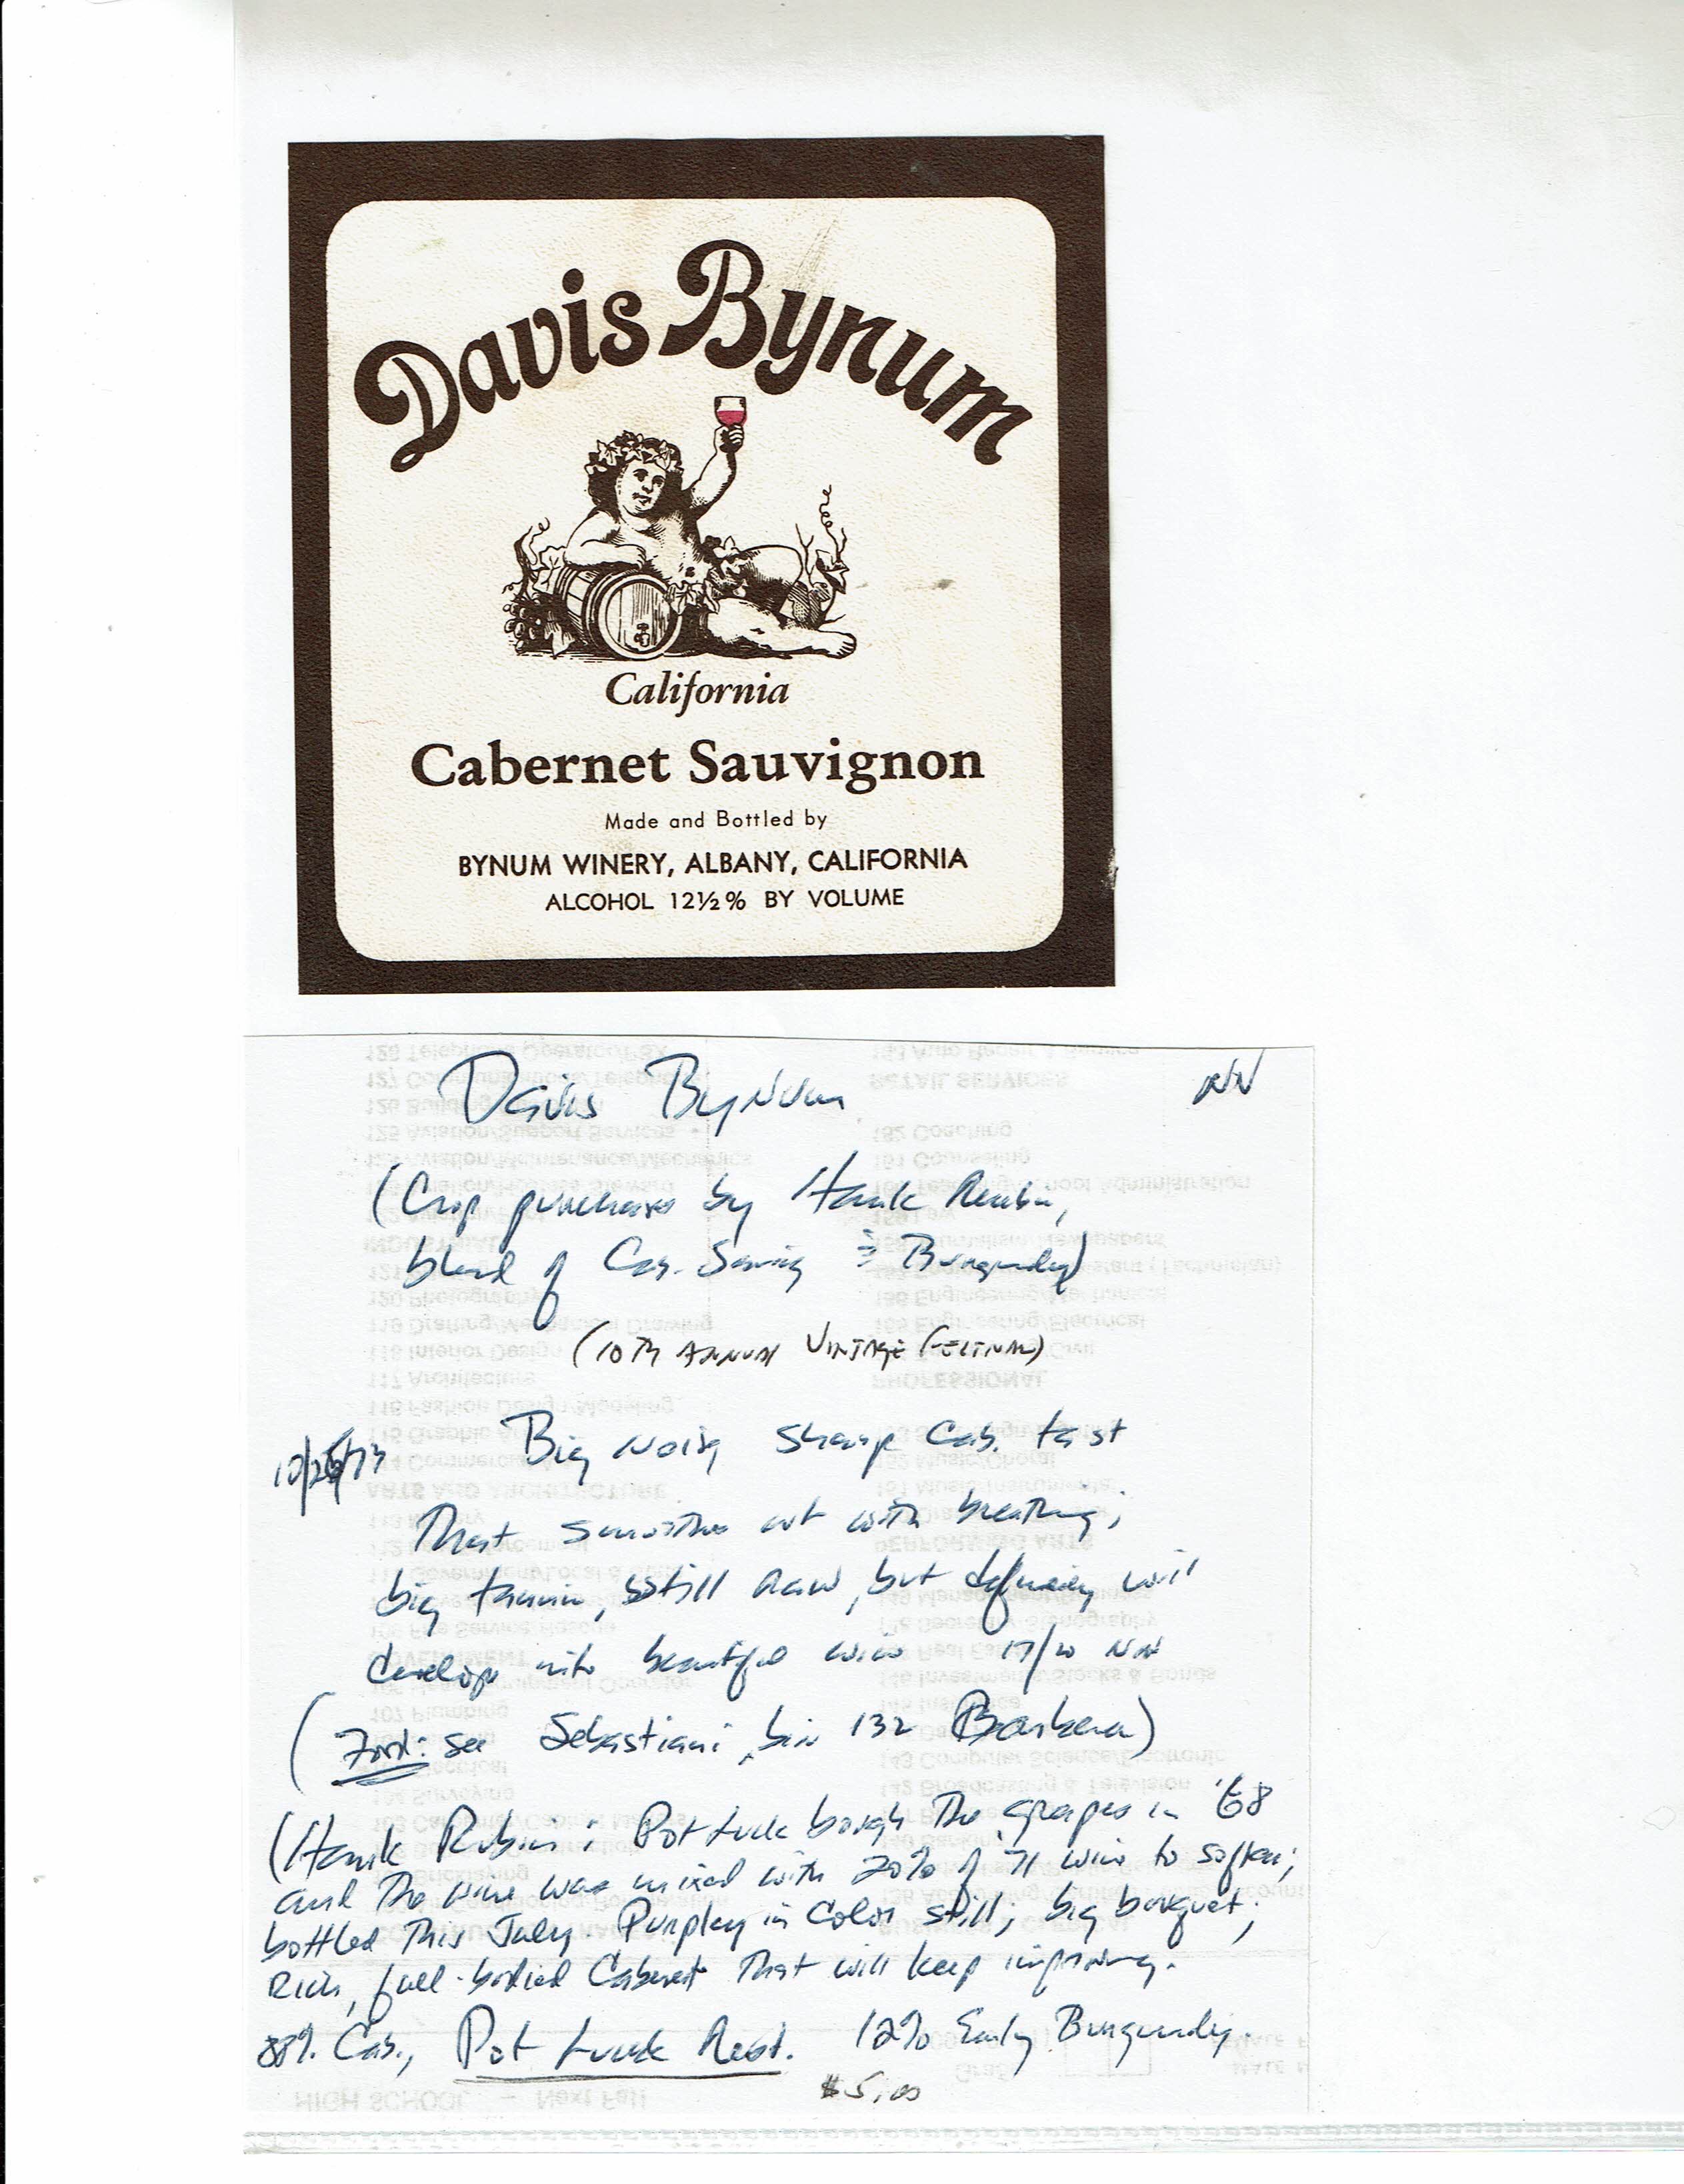 Davis Bynum
California
Cabernet Sauvignon
Made and Bottled by
BYNUM WINERY, ALBANY, CALIFORNIA
ALCOHOL 12½% BY VOLUME
Davis Bynum NN
(Crop purchased by Hank Rubin,
blend of Cab. Sauvig & Burgundy)
(10th ANNUAL VINTAGE FESTIVAL)
10/26/73 Big noisy sharp Cab. tast
That smooths out with breathing;
big tannin, still raw, but definitely will
develop into beautiful wine 17/20 NN
(Food: see Sebastiani, bin 132 Barbera)
(Hank Rubin: Pot Luck bough the grapes in '68
and the wine was mixed with 20% of '71 wine to soften;
bottled this July. Purpley in color still; big boquet;
Rich, full-bodied Cabernet that will keep improving.
88% Cab., Pot Luck Rest. 12% Early Burgundy.
$5.00
HIGH SCHOOL – Next Fall